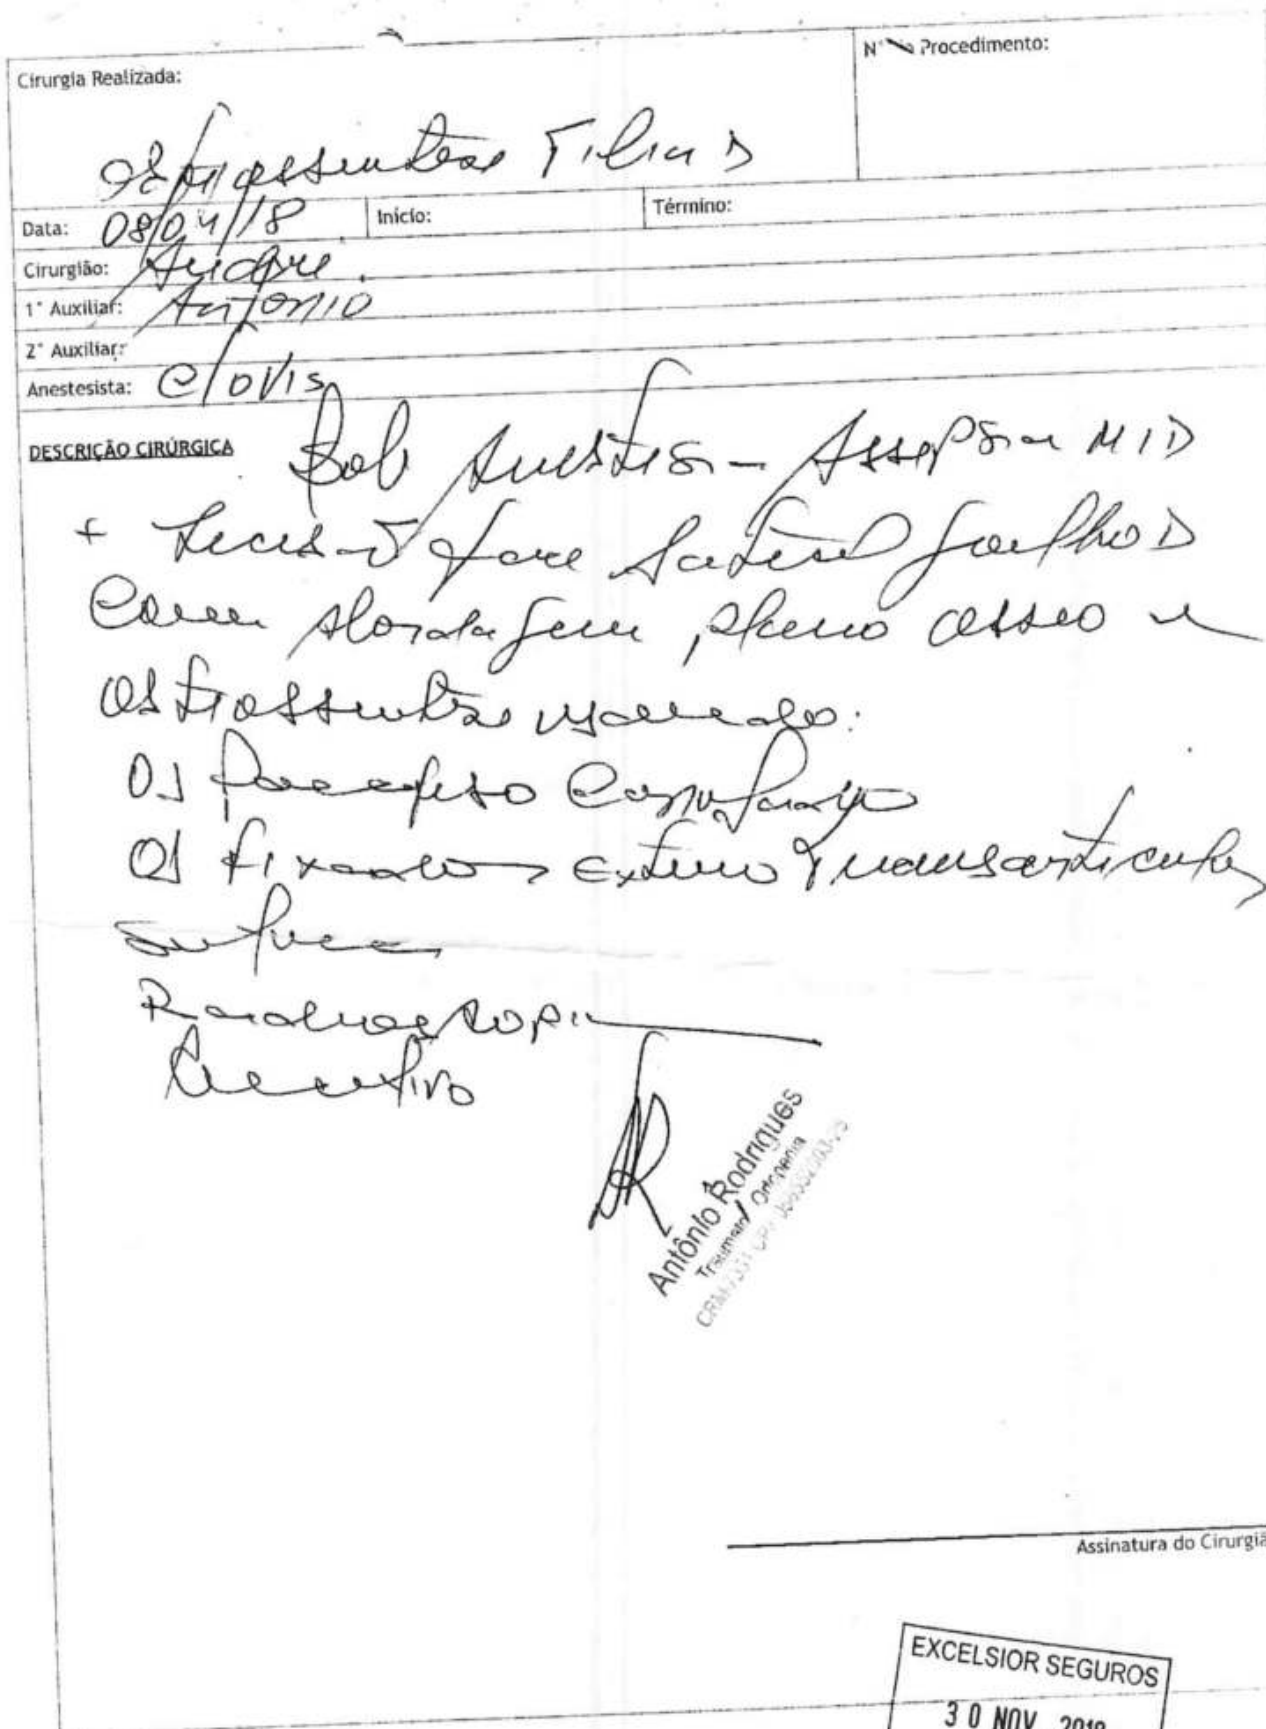 Cirurgia Realizada:
Nº do Procedimento:
Osteossíntese Tíbia D
Data: 08/04/18 Início: Término:
Cirurgião: André
1º Auxiliar: Antonio
2º Auxiliar:
Anestesista: Clovis
DESCRIÇÃO CIRÚRGICA Sob Anestesia - Assepsia MID
+ Incisão face lateral joelho D
Com abordagem plano ósseo e
osteossíntese usando:
01 parafuso
01 fixador externo transarticular
sutura
Radioscopia
Curativo
Antônio Rodrigues
Traumato / Ortopedia
Assinatura do Cirurgiã
EXCELSIOR SEGUROS
30 NOV 2018